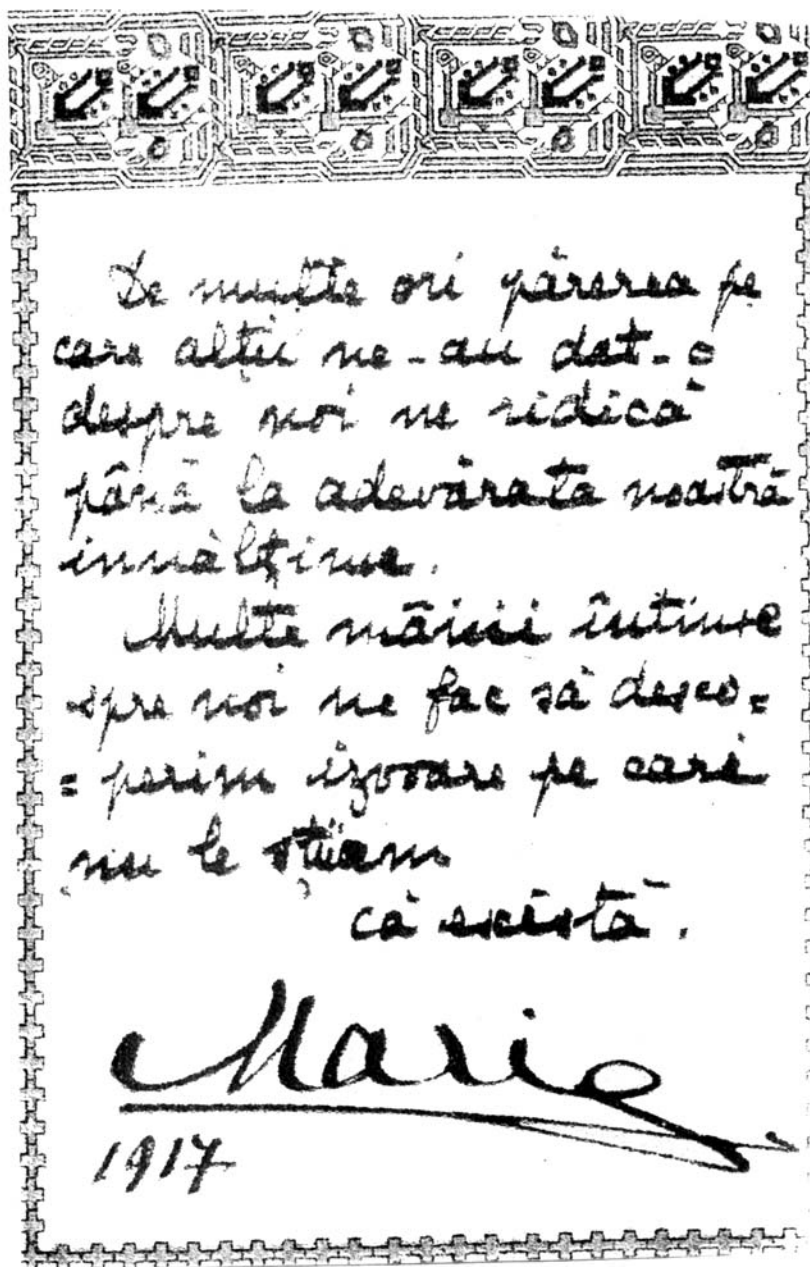 De multe ori părerea pe
care alții ne-au dat-o
despre noi ne ridică
până la adevărata noastră
innălțime.
Multe mâini întinse
spre noi ne fac să desco=
=perim izvoare pe care
nu le știam
că există.
Maria
1917